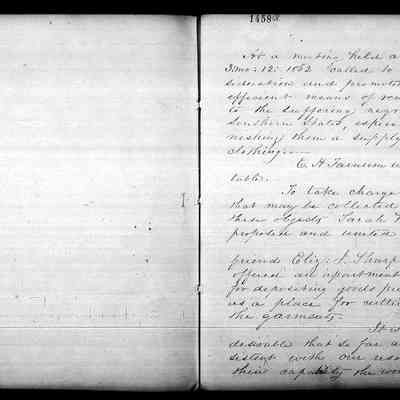 1458
At a meeting held a
3mo: 12: 1862 called to
sideration and promot
efficient means of ren
to the suffering negr
Southern States, espec
nishing them a supply
clothing:—
E. H. Farnum w
table.
To take charge
that may be collected
these objects Sarah
proposed and united
friend Eliz: J. Sharp
offered an apartment
for depositing goods
as a place for cutti
the garments.
It w
desirable that so far a
sistent with our
their capacity the wor